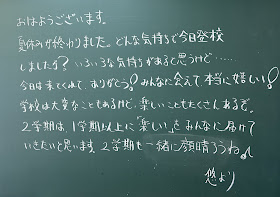 おはようございます。
夏休みが終わりました。どんな気持ちで今日登校
しましたか？いろいろな気持ちがあると思うけど……
今日は来てくれて、ありがとう！みんなに会えて本当に嬉しい！
学校は大変なこともあるけど、楽しいこともたくさんあるぞ。
2学期は、1学期以上に「楽しい」をみんなに届けて
いきたいと思います。2学期も一緒に顔晴ろうね♪
悠より